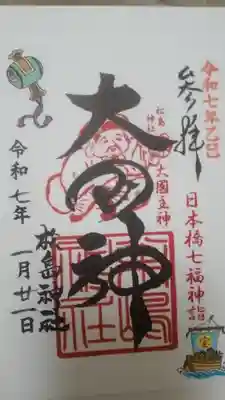 令和七年乙巳
参拝
日本橋七福神詣
松島神社
大國主神
大国神
松島神社
令和七年
一月廿一日
宝